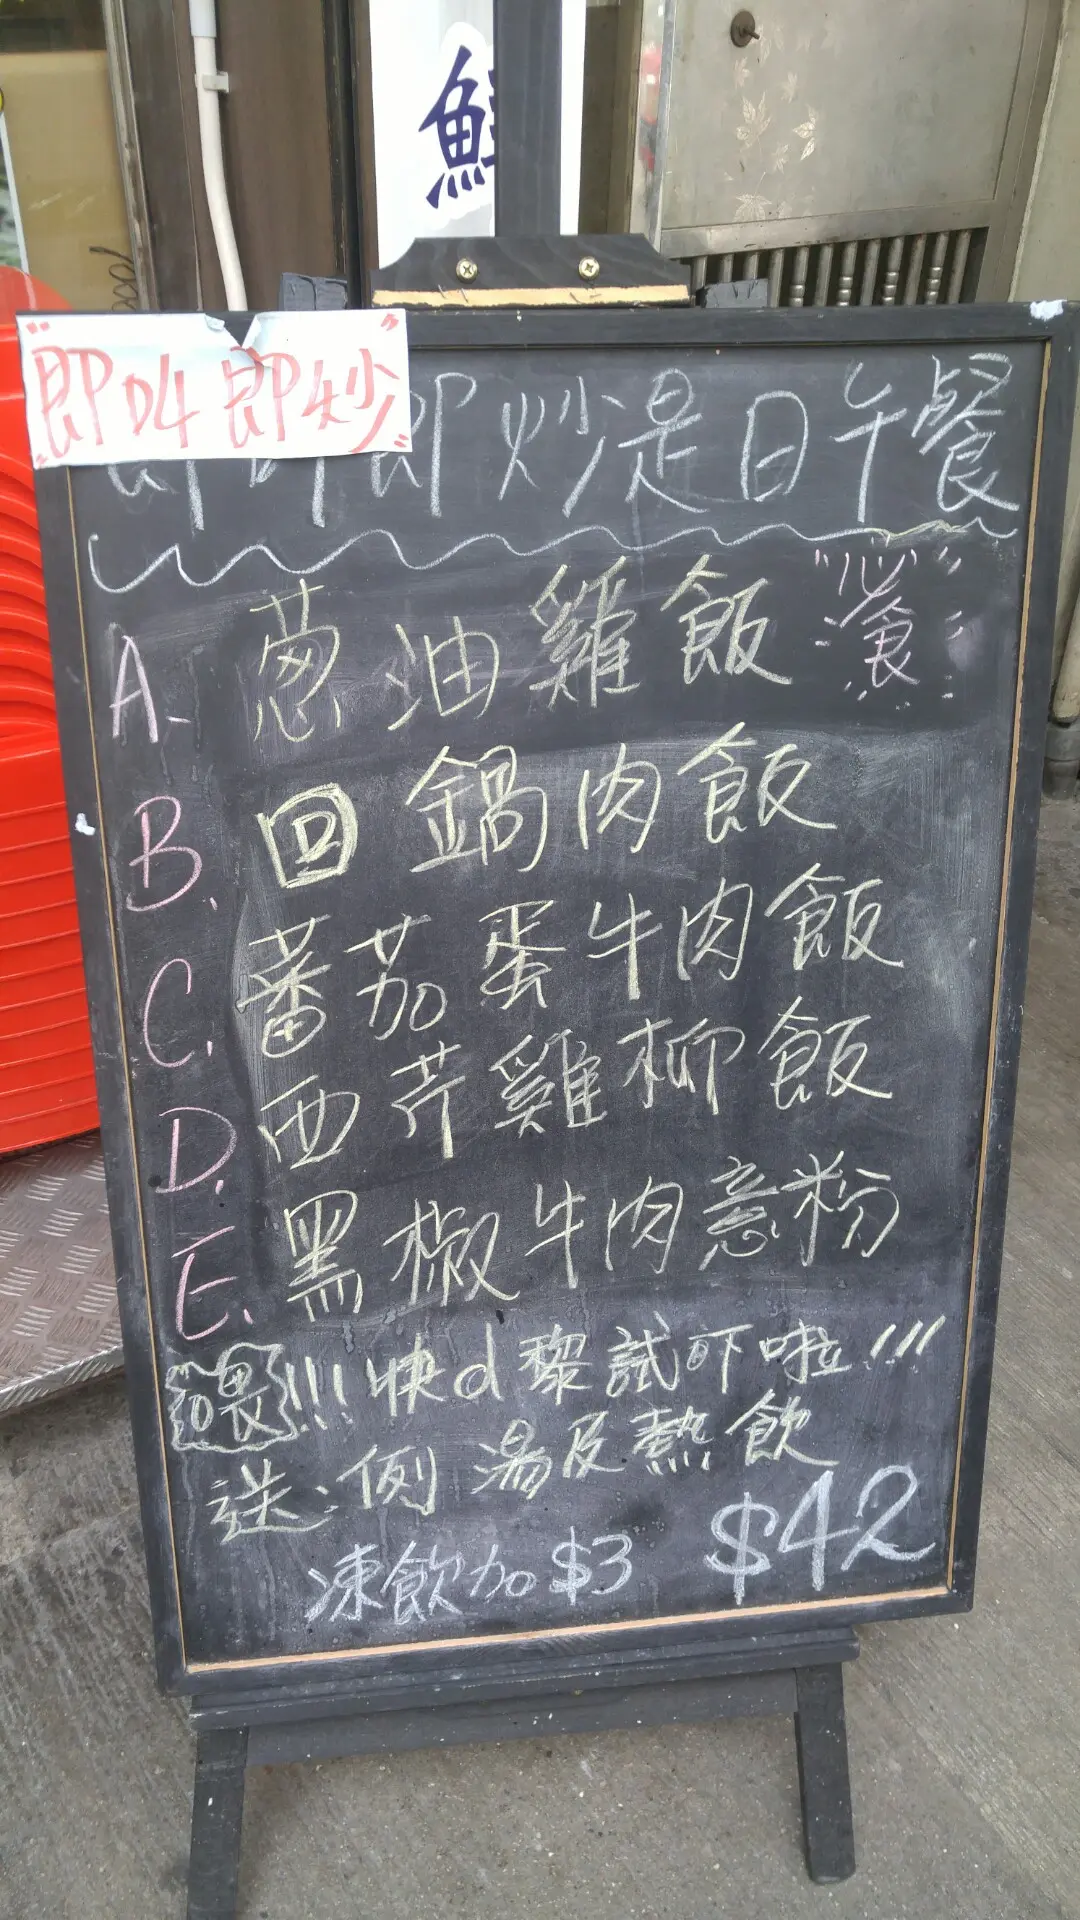 鮮
"即叫即炒"
即叫即炒是日午餐
A. 葱油雞飯
B. 回鍋肉飯
C. 蕃茄蛋牛肉飯
D. 西芹雞柳飯
E. 黑椒牛肉意粉
喂!!! 快d黎試吓啦!!!
送:例湯及熱飲
凍飲加$3 $42